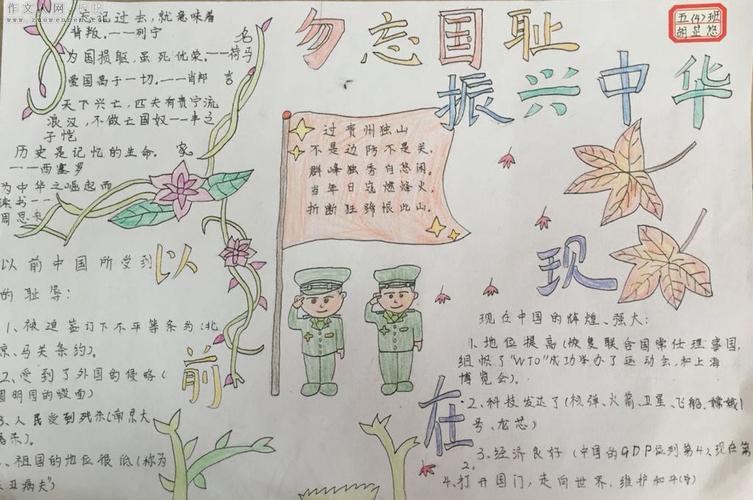 作文人网
名
忘记过去,就意味着
背叛。---列宁
为国捐躯,虽死犹荣。---荷马
爱国高于一切。---肖邦
言
天下兴亡,匹夫有责宁流
浪汉,不做亡国奴---丰之
子恺
历史是记忆的生命。
家
---西塞罗
为中华之崛起而
读书---
周恩来
勿忘国耻
振兴中华
五(4)班
过贵州独山
不是边防不是关。
群峰独秀自悠闲。
当年日寇燃烽火。
折断胜骑恨此山。
以前
以前中国所受到
的耻辱:
1、被迫签订下不平等条为(北
京、马关条约)。
2、受到了外国的侵略(
圆明园的毁面)
3、人民受到残杀(南京大
屠杀)。
、祖国的地位很低(称为
东亚病夫")
现在
现在中国的辉煌、强大:
1、地位提高(恢复联合国常任理事国,
组织了"WTO"成功举办了运动会和上海
博览会)。
2、科技发达了(核弹、火箭、卫星、飞船、嫦娥1
号、龙芯)
3、经济良好(中国的GDP位到第4,现在第
2。
4、打开国门,走向世界,维护和平(